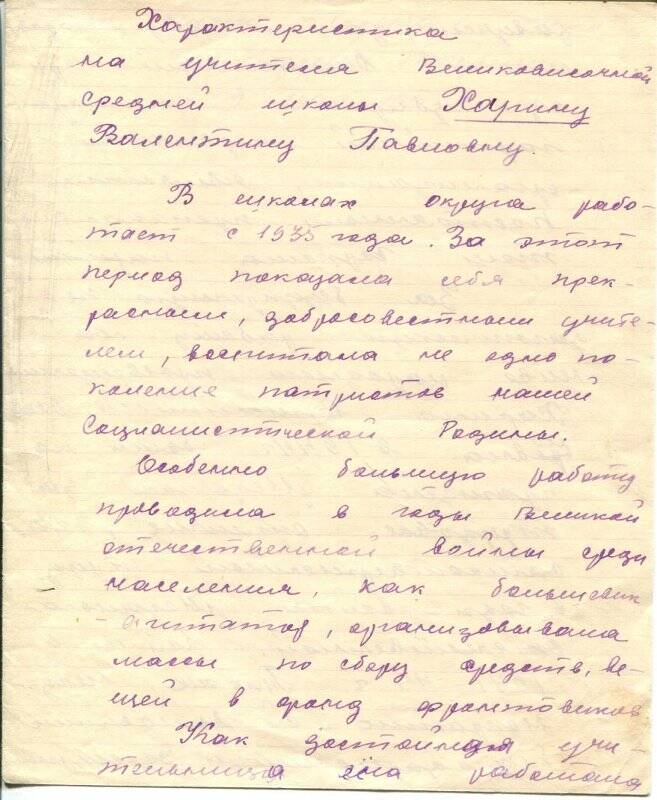 Характеристика
на учителя Великовисочной
средней школы Харину
Валентину Павловну.
В школах округа рабо-
тает с 1935 года. За этот
период показала себя прек-
расным, добросовестным учите-
лем, воспитала не одно по-
коление патриотов нашей
Социалистической Родины.
Особенно большую работу
проводила в годы Великой
отечественной войны среди
населения, как большевик
агитатор, организовывала
массы по сбору средств, ве-
щей в фонд фронтовиков
Как достойная учи-
тельница она работала